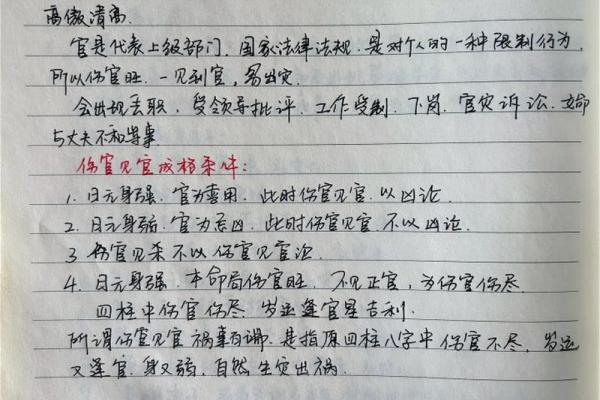 高傲清高.
官是代表上级部门.国家法律法规.是对个人的一种限制行为,
所以伤官旺.一见到官,易出灾.
会出现丢职.受领导批评.工作受制.下岗.官灾诉讼.女命
与丈夫不和等事.
伤官见官成格条件:
1.日元身强.官为喜用.此时伤官见官.以凶论.
2.日元身弱.官为忌凶.此时伤官见官.不以凶论.
3.伤官见杀不以伤官见官论.
4.日元身强.本命局伤官旺.不见正官,为伤官伤尽.
四柱中伤官伤尽.岁运逢官星吉利.
所谓伤官见官祸事百端.是指原四柱八字中伤官不尽.岁运
又逢官.身又弱,自然生灾出祸.